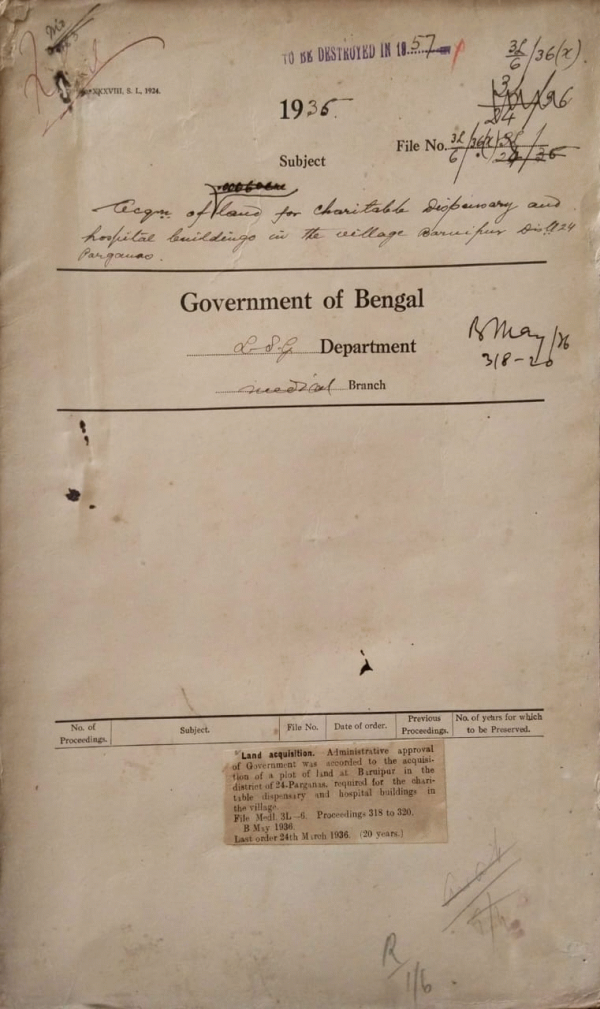 TO BE DESTROYED IN 1957
3L/6/36(x).
XXXVIII, S. L., 1924.
1935
File No. 3L/6/36(x)
Subject
Acqn of land for charitable Dispensary and
hospital buildings in the village Baruipur Distt 24
Parganas.
Government of Bengal
L.S.G Department
Medical Branch
B May/36
318-20
No. of Proceedings.
Subject.
File No.
Date of order.
Previous Proceedings.
No. of years for which to be Preserved.
Land acquisition. Administrative approval
of Government was accorded to the acquisi-
tion of a plot of land at Baruipur in the
district of 24-Parganas, required for the chari-
table dispensary and hospital buildings in
the village.
File Medl. 3L--6. Proceedings 318 to 320.
B May 1936.
Last order 24th March 1936. (20 years.)
R/1/6.